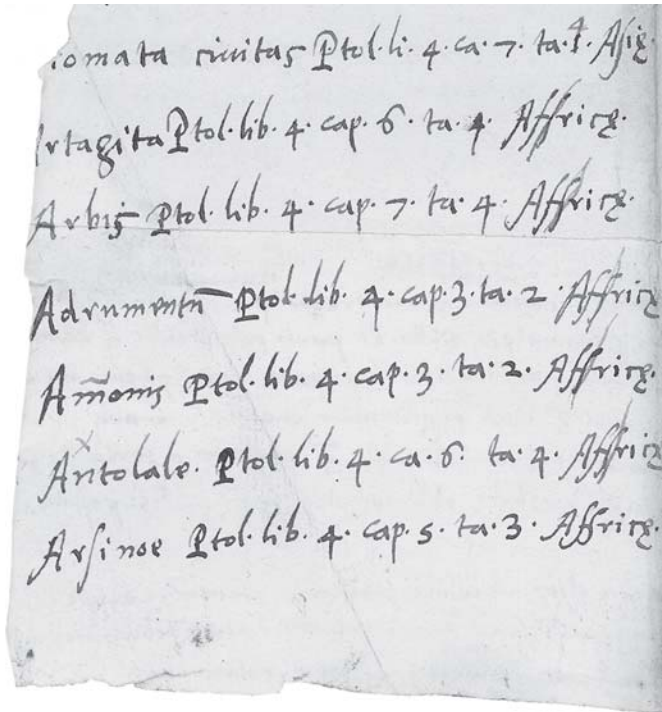 iomata ciuitas Ptol. li. 4. ca. 7. ta. 4. Asię.
rtagita Ptol. lib. 4. cap. 6. ta. 4. Affricę.
Arbis Ptol. lib. 4. cap. 7. ta. 4. Affricę.
Adrumentū Ptol. lib. 4. cap. 3. ta. 2. Affricę
Am̄onis Ptol. lib. 4. cap. 3. ta. 2. Affricę.
Antolale. Ptol. lib. 4. ca. 6. ta. 4. Affricę
Arsinoe Ptol. lib. 4. cap. 5. ta. 3. Affricę.